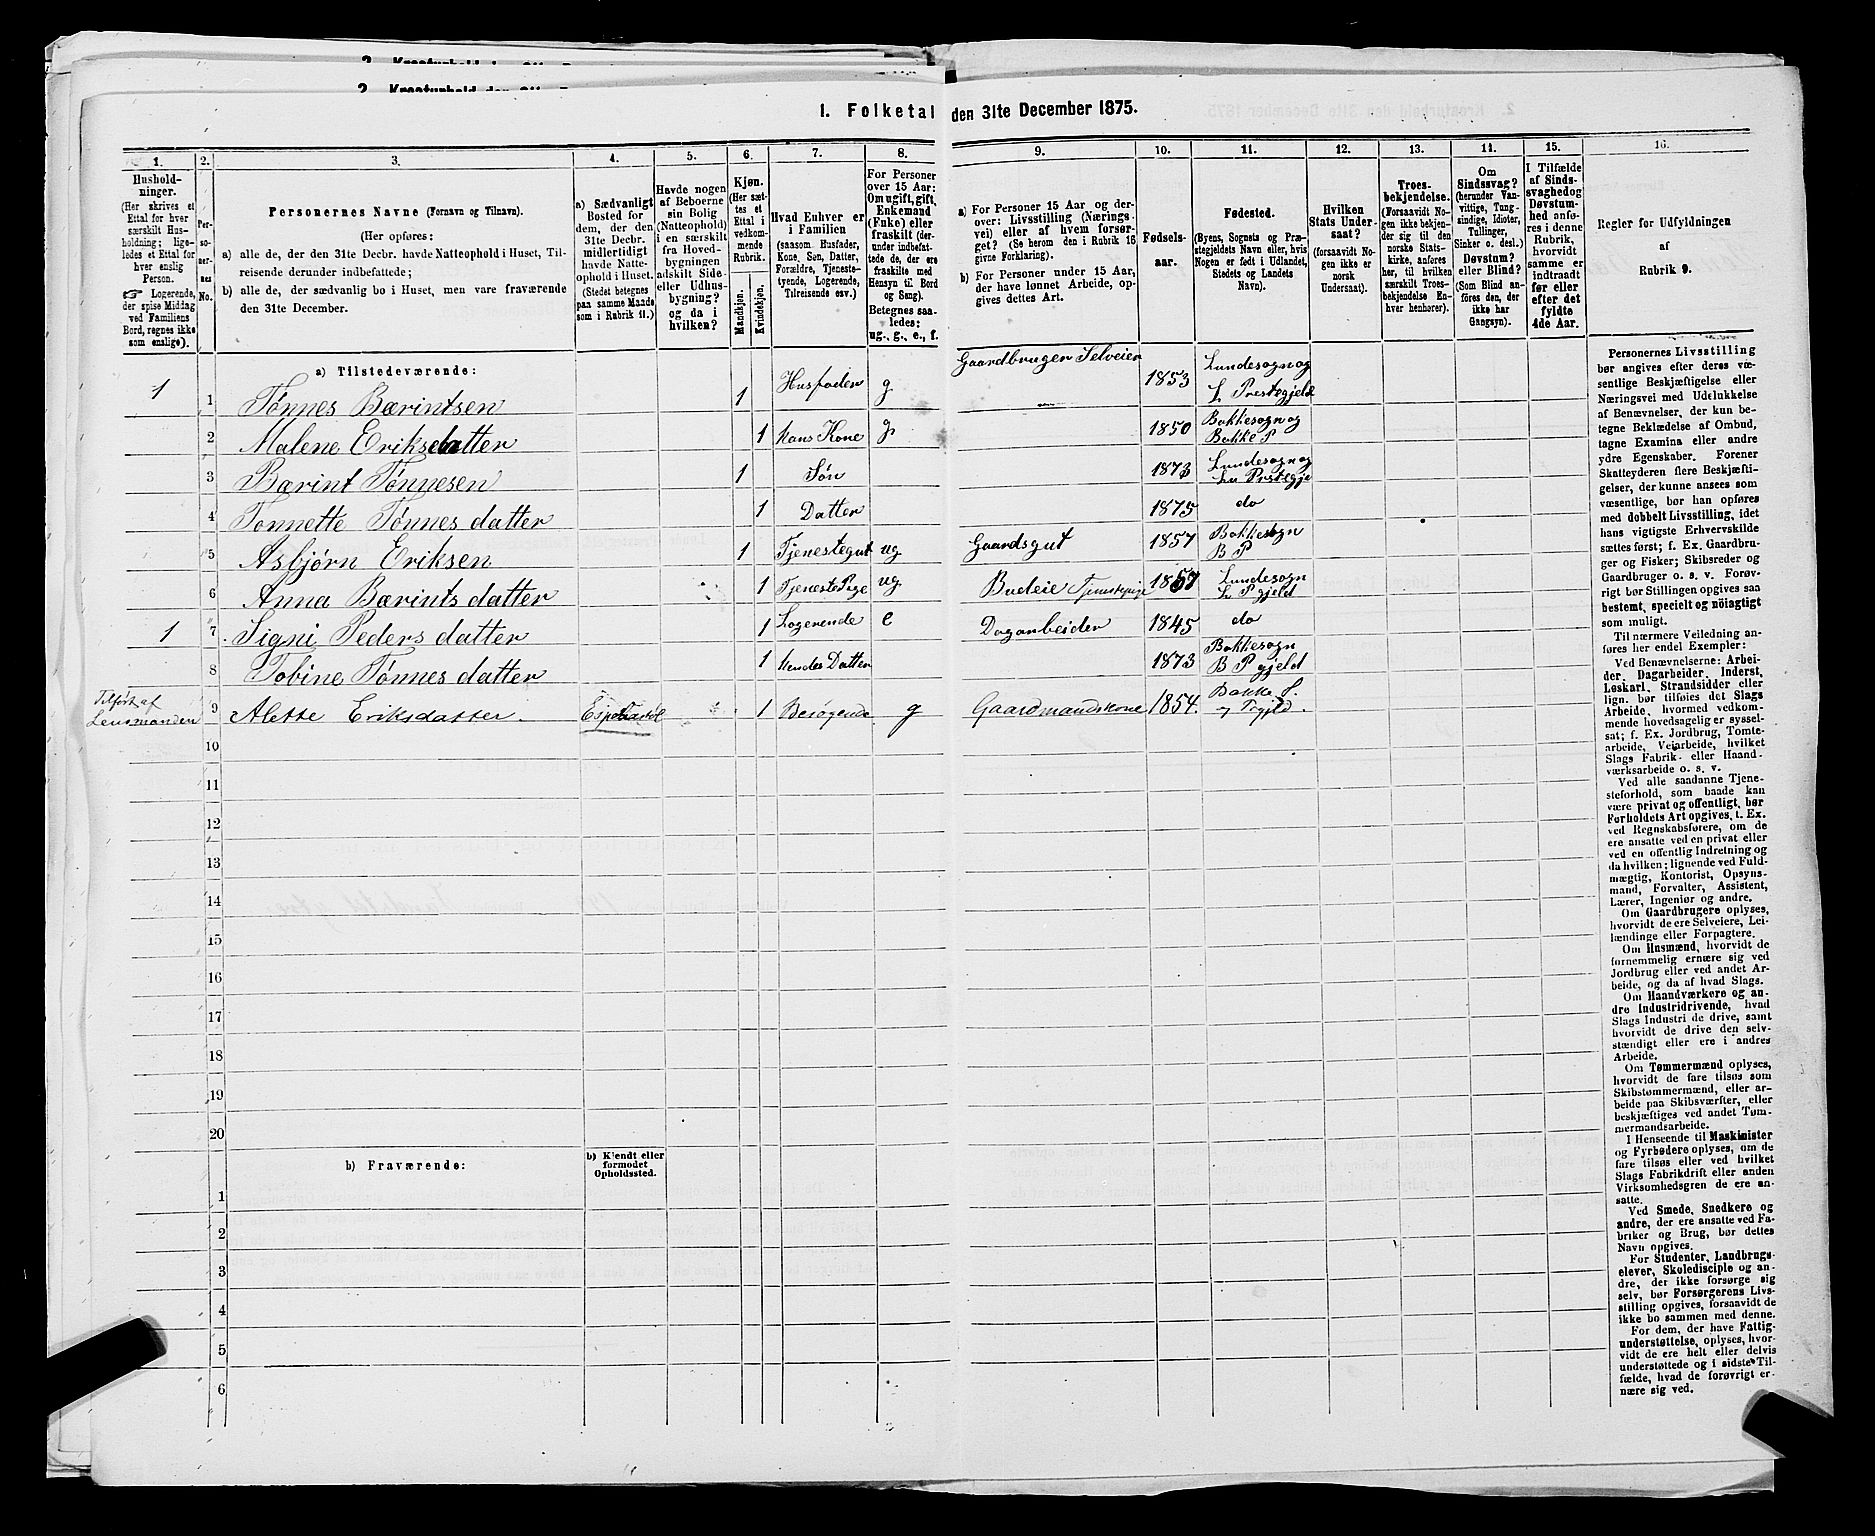 1. Folketal den 31te December 1875.
1. 2. 3. 4. 5. 6. 7. 8. 9. 10. 11. 12. 13. 14. 15. 16.
Hushold-
ninger.
(Her skrives et
Ettal for hver
særskilt Hus-
holdning; lige-
ledes et Ettal for
hver enslig
Person.
☞ Logerende,
der spise Middag
ved Familiens
Bord, regnes ikke
som enslige).
Per-
so-
ner-
nes
No.
Personernes Navne (Fornavn og Tilnavn).
(Her opføres:
a) alle de, der den 31te Decbr. havde Natteophold i Huset, Til-
reisende derunder indbefattede;
b) alle de, der sædvanlig bo i Huset, men vare fraværende
den 31te December.
a) Sædvanligt
Bosted for
dem, der den
31te Decbr.
midlertidigt
havde Natte-
ophold i Huset.
(Stedet betegnes
paa samme Maade
som i Rubrik 11.)
Havde nogen
af Beboerne
sin Bolig
(Natteophold)
i en særskilt
fra Hoved-
bygningen
adskilt Side-
eller Udhus-
bygning?
og da i
hvilken?
Kjøn.
(Her sæt-
tes et
Ettal i
vedkom-
mende
Rubrik.
Mandkjøn.
Kvindekjøn.
Hvad Enhver er
i Familien
(saasom Husfader,
Kone, Søn, Datter,
Forældre, Tjeneste-
tyende, Logerende,
Tilreisende osv.)
For Personer
over 15 Aar:
Om ugift, gift,
Enkemand
(Enke) eller
fraskilt (der-
under indbefat-
tede de, der ere
fraskilte med
Hensyn til Bord
og Seng).
Betegnes saa-
ledes:
ug., g., e., f.
a) For Personer 15 Aar og der-
over: Livsstilling (Nærings-
vei) eller af hvem forsør-
get? (Se herom den i Rubrik 16
givne Forklaring).
b) For Personer under 15 Aar,
der have lønnet Arbeide, op-
gives dettes Art.
Fødsels-
aar.
Fødested.
(Byens, Sognets og Præ-
stegjeldets Navn eller, hvis
Nogen er født i Udlandet,
Stedets og Landets
Navn).
Hvilken
Stats Under-
saat?
(forsaavidt No-
gen ikke er
norsk
Undersaat).
Troes-
bekjendelse.
(Forsaavidt No-
gen ikke bekjen-
der sig til den
norske Stats-
kirke, anføres
her, til hvilken
særskilt Troes-
bekjendelse En-
hver henhører).
Om
Sindssvag?
(herunder Van-
vittige, Tung-
sindige, Idioter,
Tullinger,
Sinker o. desl.)
Døvstum?
eller Blind?
(Som Blind an-
føres den, der
ikke har
Gangsyn).
I Tilfælde
af Sinds-
svaghed og
Døvstum-
hed anfø-
res i denne
Rubrik,
hvorvidt
samme er
indtraadt
før eller
efter det
fyldte
4de Aar.
Regler for Udfyldningen
af
Rubrik 9.
a) Tilstedeværende:
1 1 Tønnes Bærintsen 1 Husfader g Gaardbruger Selveier 1853 Lundesogn og
L Prestegjeld
2 Malene Eriksdatter 1 Hans Kone g 1850 Bakkesogn og
Bakke P
3 Bærint Tønnesen 1 Søn 1873 Lundesogn og
Lu Prstegje
4 Tonnette Tønnes datter 1 Datter 1875 do
5 Asbjørn Eriksen 1 Tjenestegut ug Gaardsgut 1857 Bakkesogn
B P
6 Anna Bærints datter 1 TjenestePige ug Budeie Tjenestepige 1857 Lundesogn
L P gjeld
1 7 Signi Peders datter 1 Logerende e Dagarbeider 1845 do
8 Tobine Tønnes datter 1 Hendes Datter 1873 Bakkesogn
B P gjeld
Tilført af
Lensmanden 9 Alette Eriksdatter. 1 Besøgende g Gaardmandskone 1854. Bakke S.
og Prgjld.
10
11
12
13
14
15
16
17
18
19
20
b) Fraværende:
b) Kjendt eller
formodet
Opholdssted.
1
2
3
4
5
6
Personernes Livsstilling
bør angives efter deres væ-
sentlige Beskjæftigelse eller
Næringsvei med Udelukkelse
af Benævnelser, der kun be-
tegne Beklædelse af Ombud,
tagne Examina eller andre
ydre Egenskaber. Forener
Skatteyderen flere Beskjæfti-
gelser, der kunne ansees som
væsentlige, bør han opføres
med dobbelt Livsstilling, idet
hans vigtigste Erhvervskilde
sættes først; f. Ex. Gaardbru-
ger og Fisker; Skibsreder og
Gaardbruger o. s. v. Forøv-
rigt bør Stillingen opgives saa
bestemt, specielt og nøiagtigt
som muligt.
Til nærmere Veiledning an-
føres her endel Exempler:
Ved Benævnelserne: Arbei-
der, Dagarbeider, Inderst,
Løskarl, Strandsidder eller
lign. bør tilføies det Slags
Arbeide, hvormed vedkom-
mende hovedsagelig er syssel-
sat; f. Ex. Jordbrug, Tomte-
arbeide, Veiarbeide, hvilket
Slags Fabrik- eller Haand-
værksarbeide o. s. v.
Ved alle saadanne Tjene-
steforhold, som baade kan
være privat og offentligt, bør
Forholdets Art opgives, t. Ex.
ved Regnskabsførere, om de
ere ansatte ved en privat eller
ved en offentlig Indretning og
da hvilken; lignende ved Fuld-
mægtig, Kontorist, Opsyns-
mand, Forvalter, Assistent,
Lærer, Ingeniør og andre.
Om Gaardbrugere oplyses,
hvorvidt de ere Selveiere, Lei-
lændinge eller Forpagtere.
Om Husmænd, hvorvidt de
fornemmelig ernære sig ved
Jordbrug eller ved andet Ar-
beide, og da af hvad Slags.
Om Haandværkere og an-
dre Industridrivende, hvad
Slags Industri de drive, samt
hvorvidt de drive den selv-
stændigt eller ere i andres
Arbeide.
Om Tømmermænd oplyses,
hvorvidt de fare tilsøs som
Skibstømmermænd, eller ar-
beide paa Skibsværfter, eller
beskjæftiges ved andet Tøm-
mermandsarbeide.
I Henseende til Maskinister
og Fyrbødere oplyses, om de
fare tilsøs eller ved hvilket
Slags Fabrikdrift eller anden
Virksomhedsgren de ere an-
satte.
Ved Smede, Snedkere og
andre, der ere ansatte ved Fa-
briker og Brug, bør dettes
Navn opgives.
For Studenter, Landbrugs-
elever, Skoledisciple og an-
dre, der ikke forsørge sig
selv, bør Forsørgerens Livs-
stilling opgives, forsaavidt de
ikke bo sammen med denne.
For dem, der have Fattig-
understøttelse, oplyses, hvor-
vidt de ere helt eller delvis
understøttede og i sidste Til-
fælde, hvad de forøvrigt er-
nære sig ved.